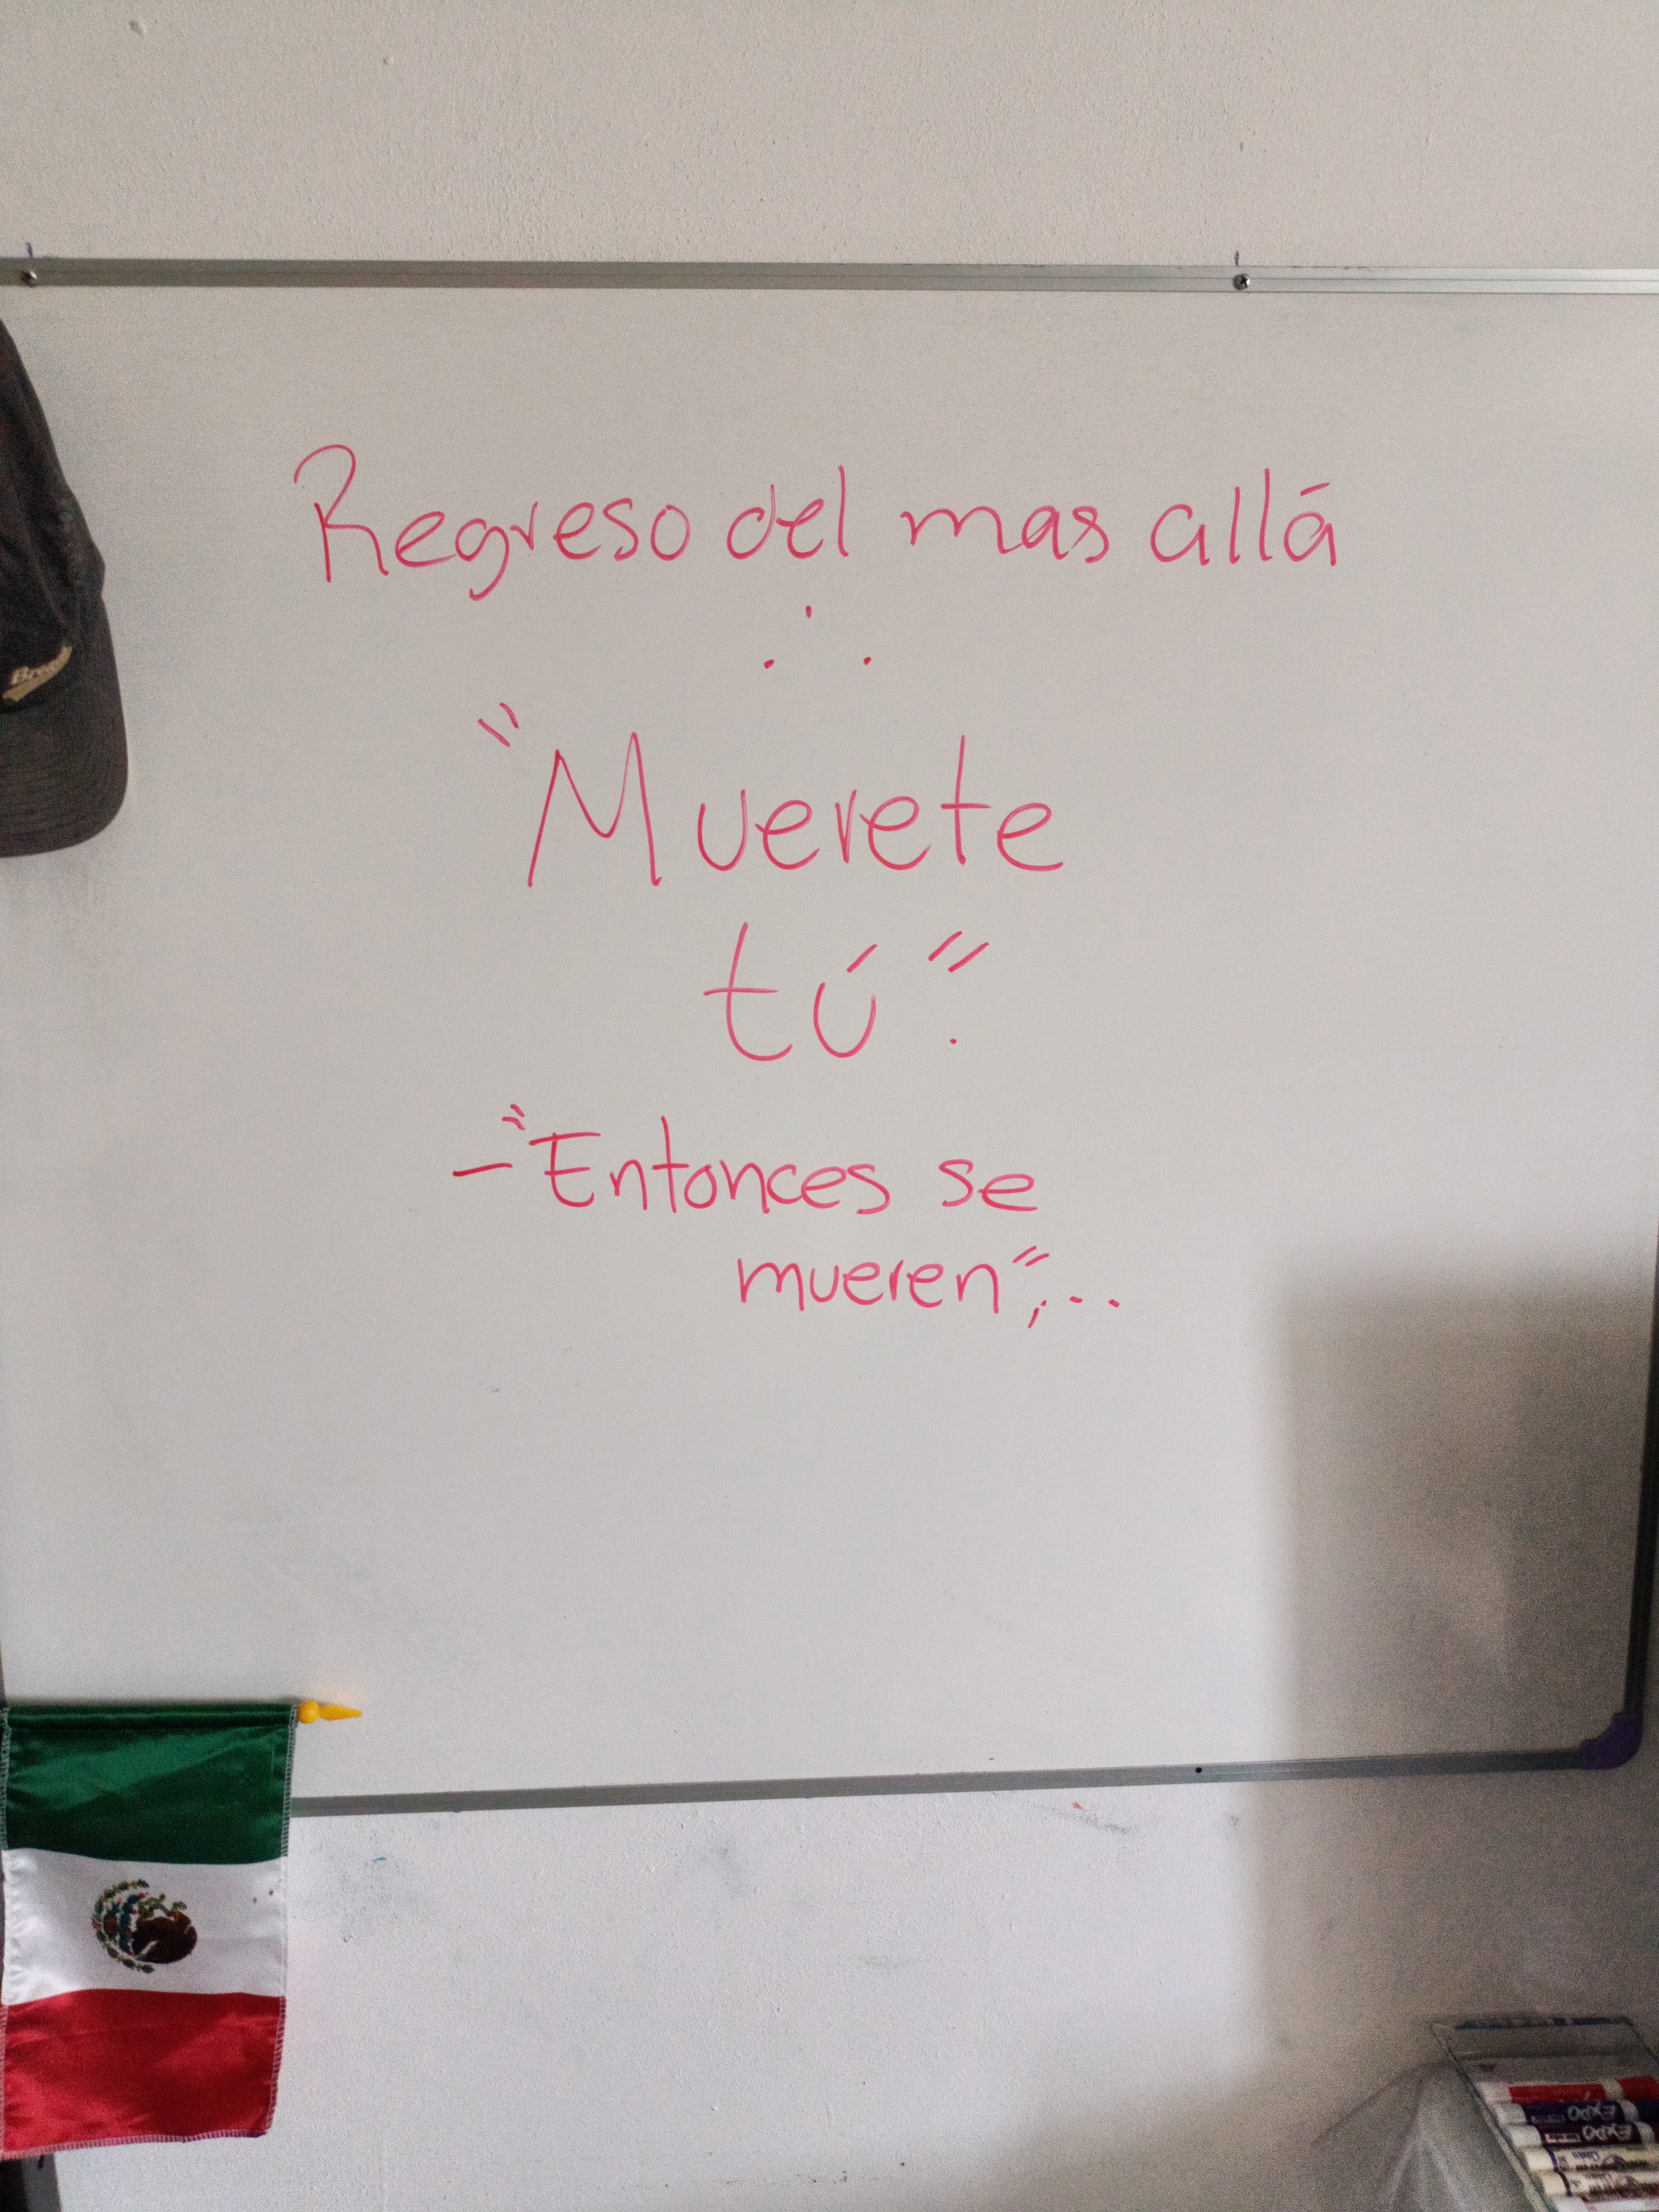 Regreso del mas allá
∴
"Muerete
tú".
-"Entonces se
mueren",..
EXPO
EXPO